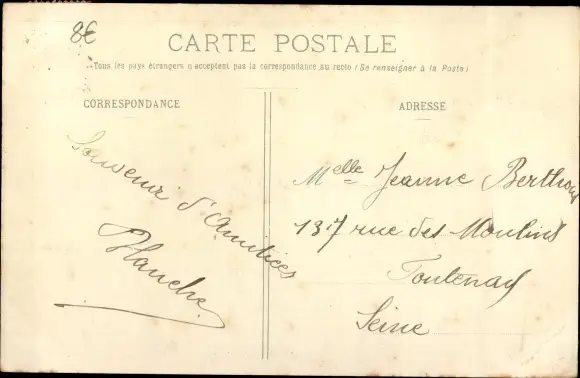 8€
CARTE POSTALE
Tous les pays étrangers n'acceptent pas la correspondance au recto (Se renseigner à la Poste)
CORRESPONDANCE
Souvenir d'Amitiées
Blanche
ADRESSE
Melle Jeanne Berthoux
137 rue des Moulins
Fontenay
Seine